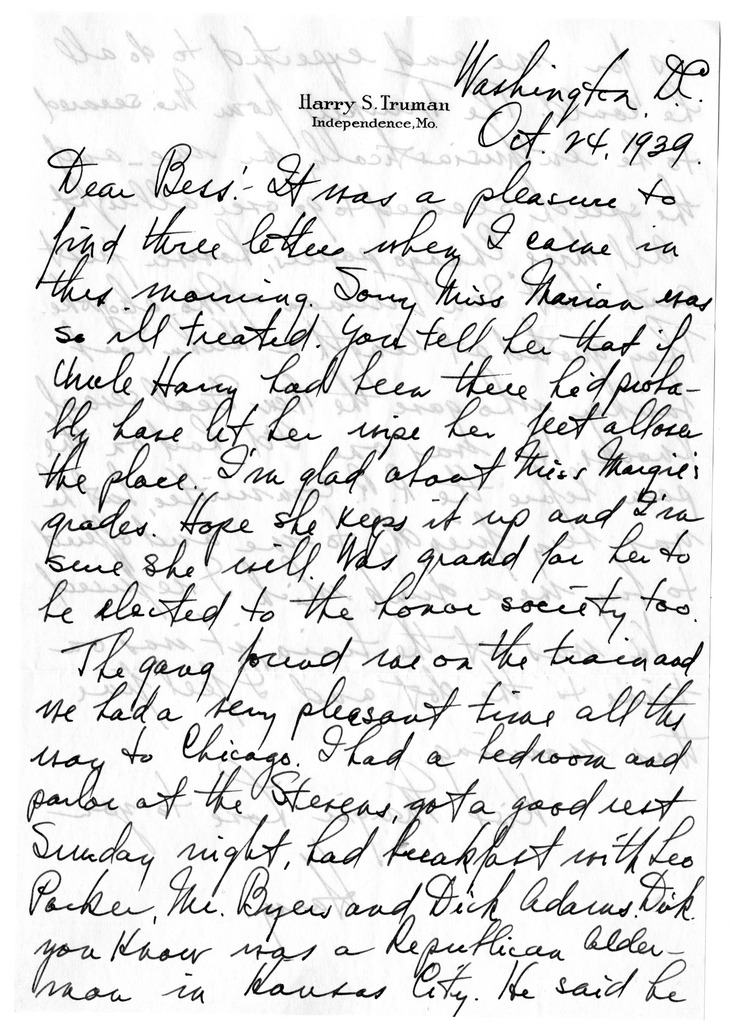 Washington, D.C.
Harry S. Truman
Independence, Mo.
Oct. 24, 1939.
Dear Bess:- It was a pleasure to
find three letters when I came in
this morning. Sorry Miss Marian was
so ill treated. You tell her that if
Uncle Harry had been there he'd proba-
bly have let her wipe her feet all over
the place. I'm glad about Miss Margie's
grades. Hope she keeps it up and I'm
sure she will. Was grand for her to
be elected to the honor society too.
The gang found me on the train and
we had a very pleasant time all the
way to Chicago. I had a bedroom and
parlor at the Stevens, got a good rest
Sunday night, had breakfast with Leo
Parker, Mr. Byers and Dick Adams. Dick
you know was a Republican alder-
man in Kansas City. He said he